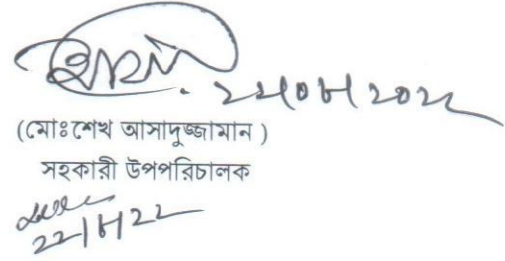 ২২/০৮/২০২২
(মোঃশেখ আসাদুজ্জামান )
সহকারী উপপরিচালক
২২/৮/২২